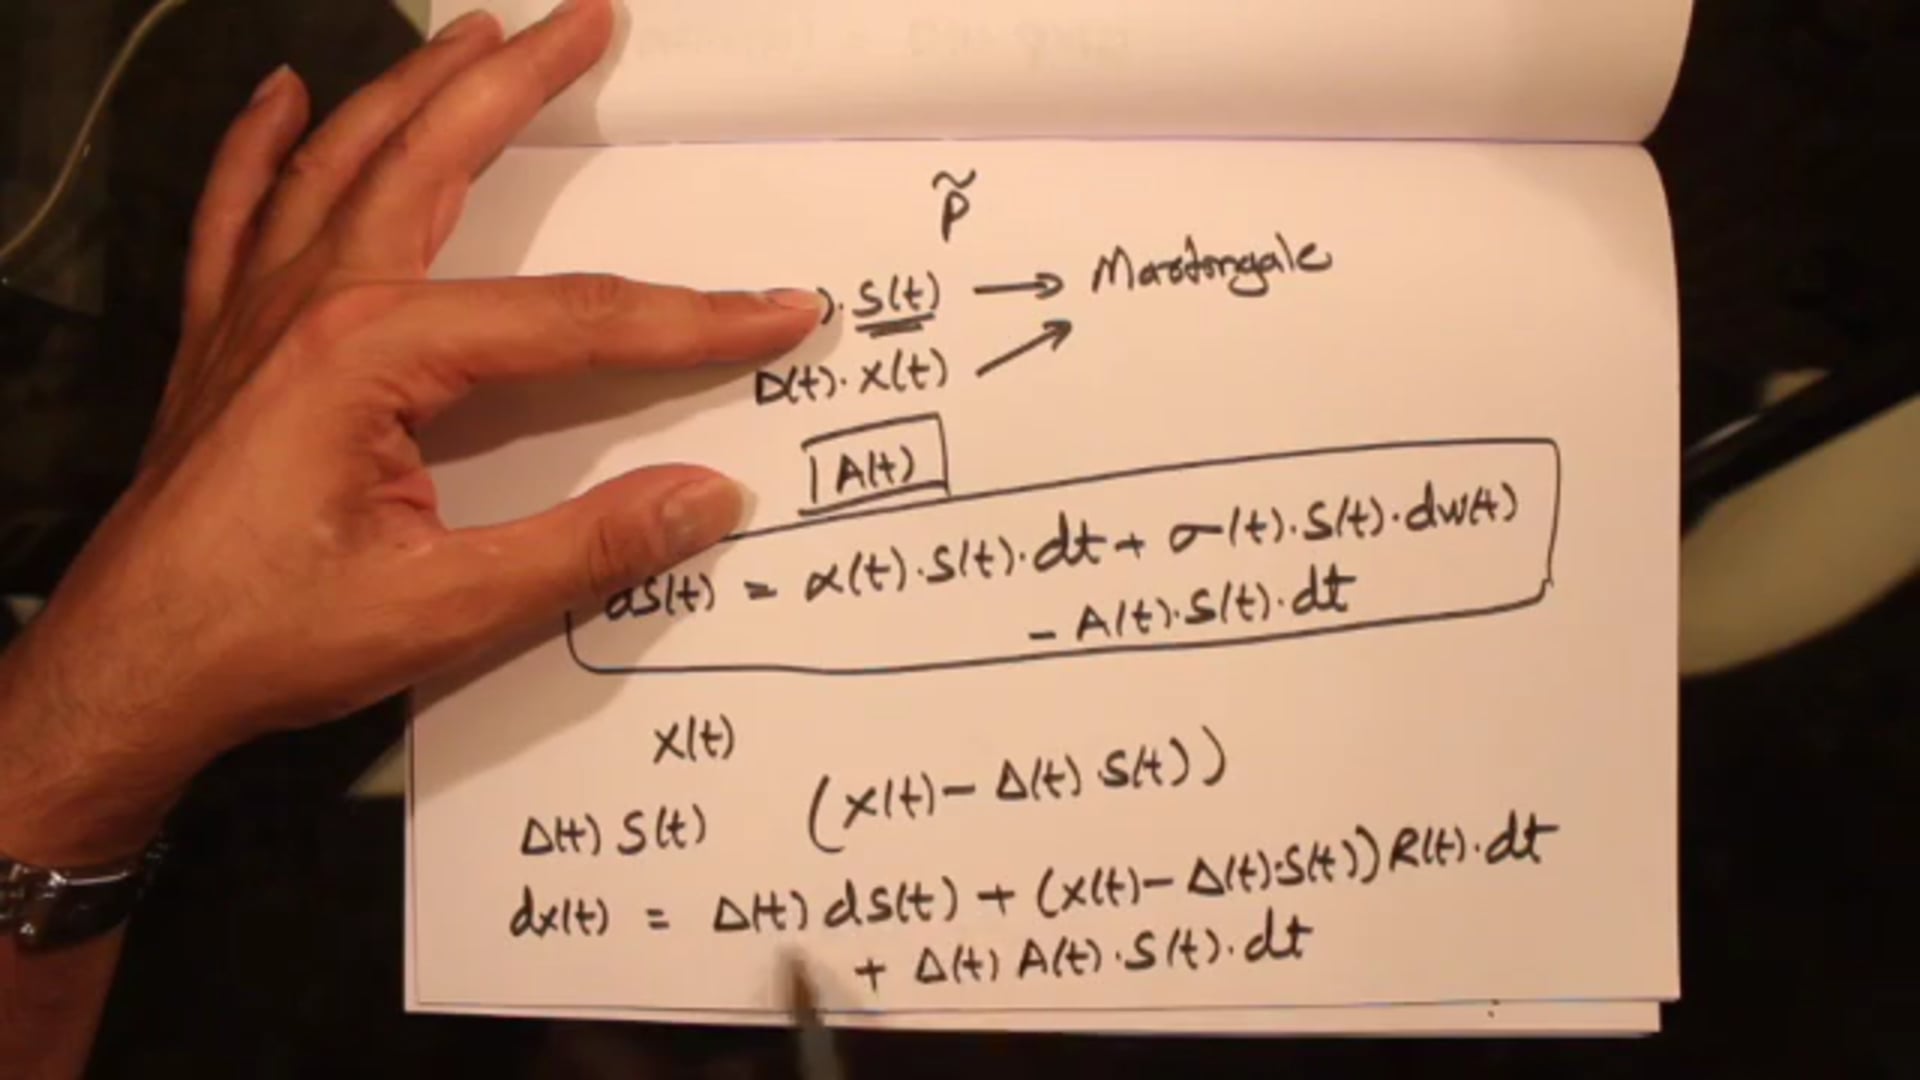 P̃
). S(t) → Martingale
D(t). X(t)
A(t)
dS(t) = α(t).S(t).dt + σ(t).S(t).dW(t)
- A(t).S(t).dt
X(t)
Δ(t) S(t) (X(t) - Δ(t) S(t))
dX(t) = Δ(t) dS(t) + (X(t) - Δ(t).S(t)) R(t).dt
+ Δ(t) A(t).S(t).dt